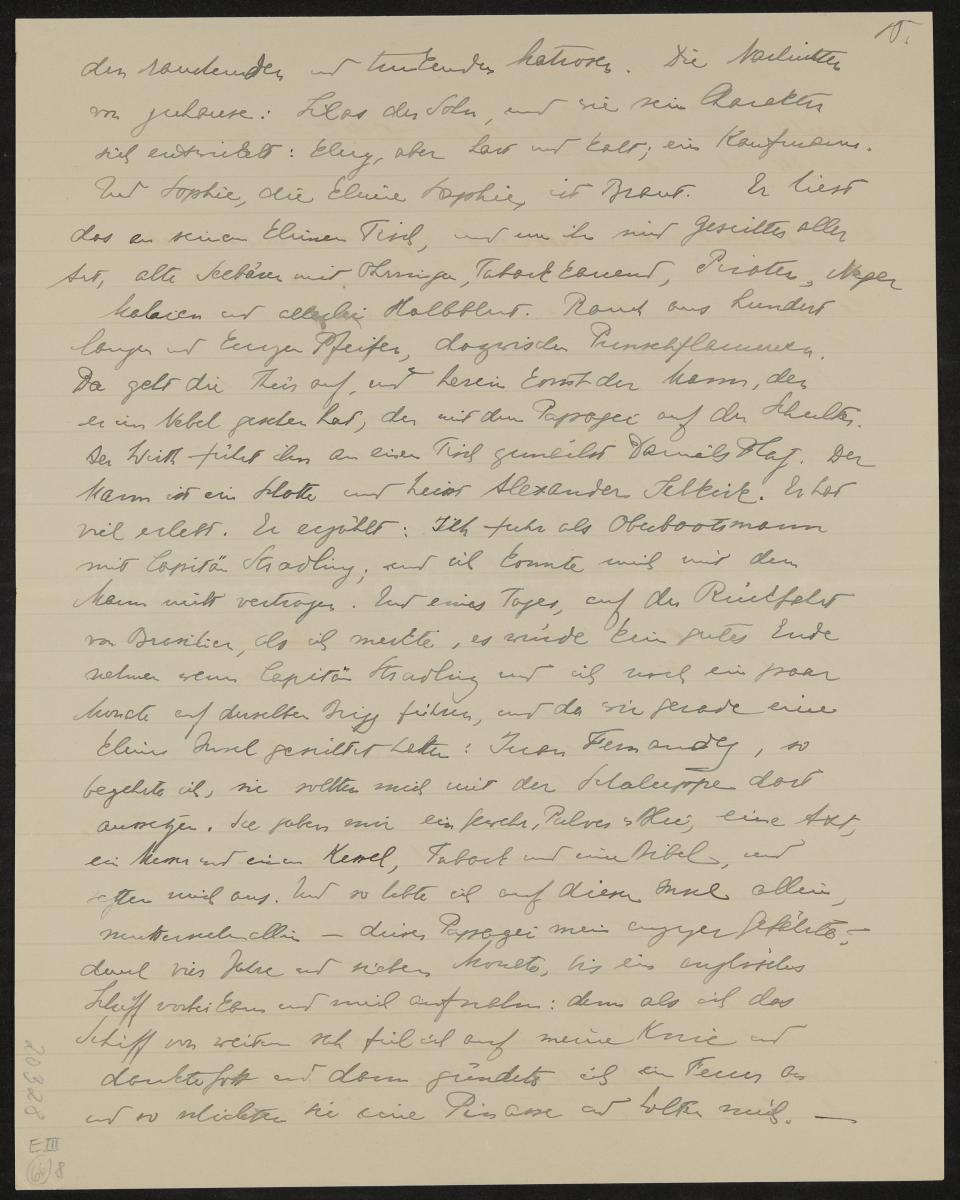 10.
den rauchenden und trinkenden Matrosen. Die Nachrichten
von zuhause: Silas der Sohn, und wie sein Charakter
sich entwickelt: klug, aber hart und kalt; ein Kaufmann.
Und Sophie, die kleine Sophie, ist Braut. Er liest
das an seinem kleinen Tisch, und um ihn sind Gesichter aller
Art, alte Seebären mit Ohrringen, Taback kauend, Piraten, Neger
Malaien und allerlei Halbblut. Rauch aus hundert
langen und kurzen Pfeifen, dazwischen Punschflammen.
Da geht die Thür auf, und herein kommt der Mann, den
er im Nebel gesehen hat, der mit dem Papagei auf der Schulter.
Der Wirth führt ihn an einen Tisch zunächst Daniels Platz. Der
Mann ist ein Schotte und heisst Alexander Selkirk. Er hat
viel erlebt. Er erzählt: Ich fuhr als Oberbootsmann
mit Capitän Stradling, und ich konnte mich mit dem
Mann nicht vertragen. Und eines Tages, auf der Rückfahrt
von Brasilien, als ich merkte, es würde kein gutes Ende
nehmen wenn Capitän Stradling und ich noch ein paar
Monate auf derselben Brigg führen, und da wir gerade eine
kleine Insel gesichtet hatten: Juan Fernandez, so
begehrte ich, sie sollten mich mit der Schaluppe dort
aussetzen. Sie gaben mir ein Gewehr, Pulver u Blei, eine Axt,
ein Messer und einen Kessel, Taback und eine Bibel, und
setzten mich aus. Und so lebte ich auf dieser Insel allein,
mutterseelenallein – dieser Papagei mein einziger Gefährte –
durch vier Jahre und sieben Monate, bis ein englisches
Schiff vorbei kam und mich aufnahm: denn als ich das
Schiff von weitem sah fiel ich auf meine Knie und
dankte Gott und dann zündete ich ein Feuer an
und so schickten sie eine Pinasse und holten mich. —
20328
E III
8